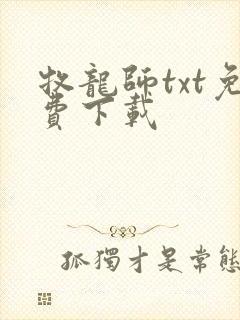 牧龍師txt免
費下載
孤獨才是常態